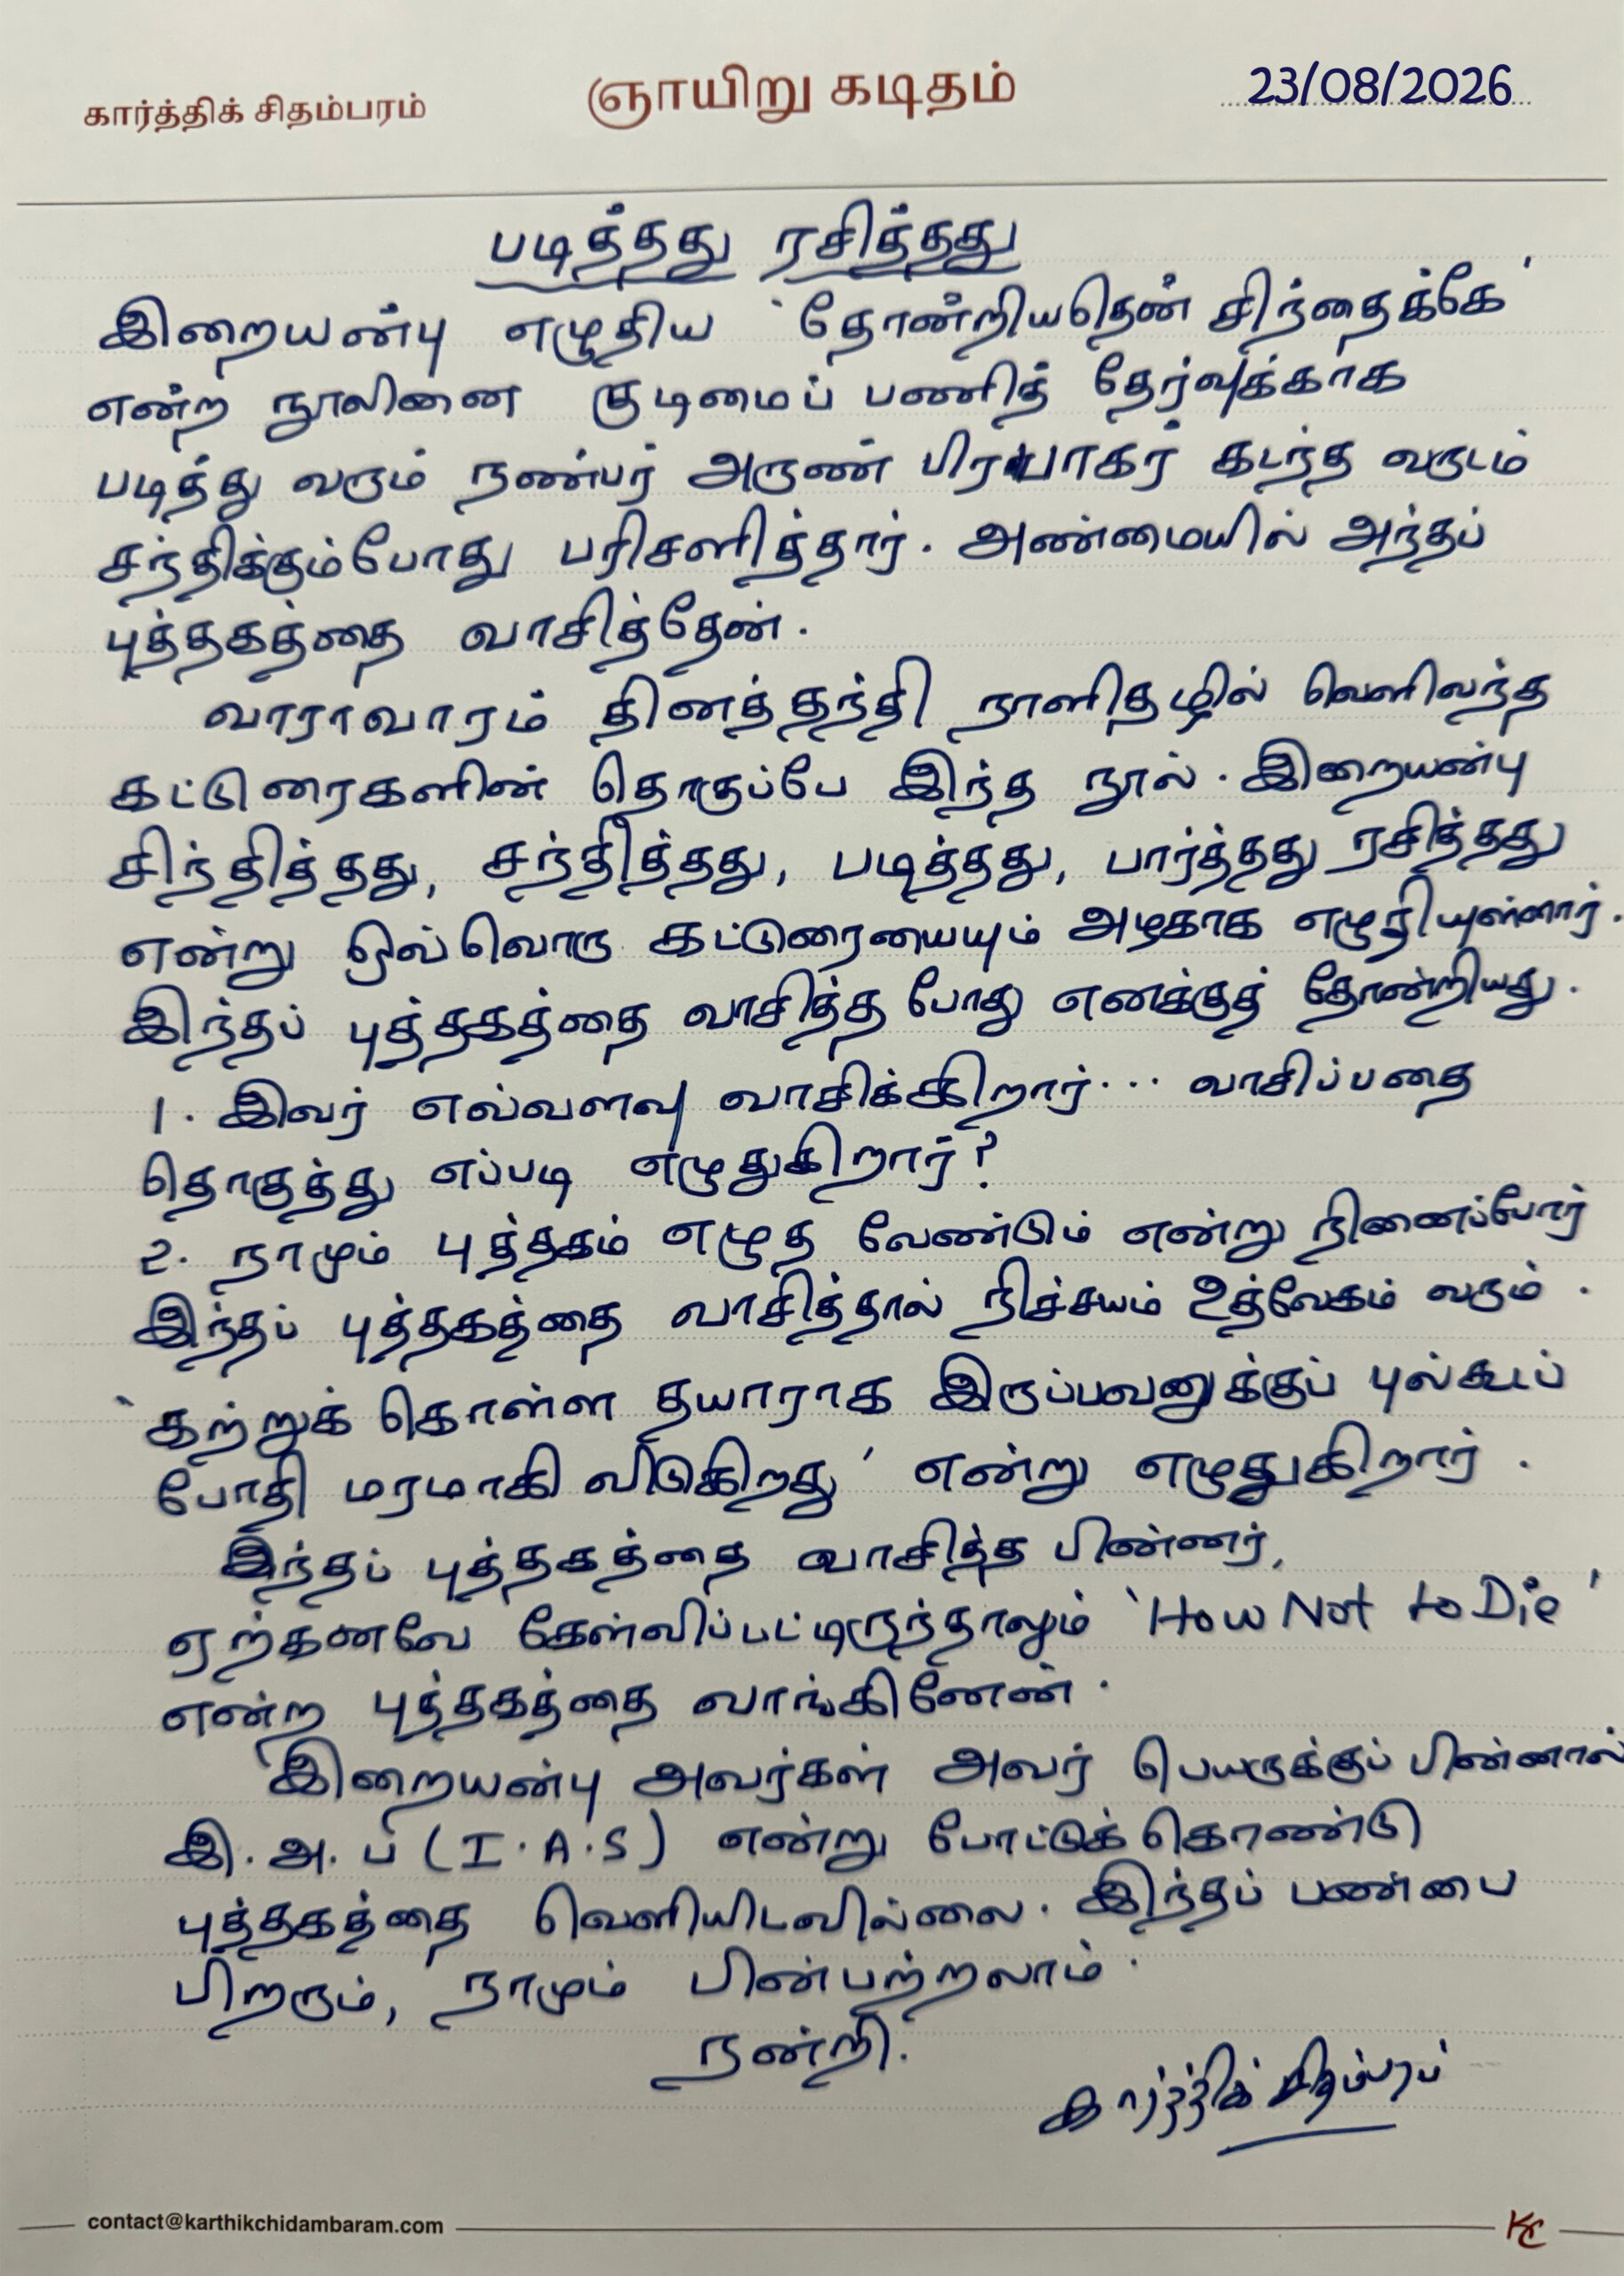 கார்த்திக் சிதம்பரம்
ஞாயிறு கடிதம்
23/08/2026
படித்தது ரசித்தது
இறையன்பு எழுதிய 'தோன்றியதென் சிந்தைக்கே'
என்ற நூலினை குடிமைப் பணித் தேர்வுக்காக
படித்து வரும் நண்பர் அருண் பிரபாகர் கடந்த வருடம்
சந்திக்கும்போது பரிசளித்தார். அண்மையில் அந்தப்
புத்தகத்தை வாசித்தேன்.
வாராவாரம் தினத்தந்தி நாளிதழில் வெளிவந்த
கட்டுரைகளின் தொகுப்பே இந்த நூல். இறையன்பு
சிந்தித்தது, சந்தித்தது, படித்தது, பார்த்தது ரசித்தது
என்று ஒவ்வொரு கட்டுரையையும் அழகாக எழுதியுள்ளார்.
இந்தப் புத்தகத்தை வாசித்த போது எனக்குத் தோன்றியது.
1. இவர் எவ்வளவு வாசிக்கிறார்... வாசிப்பதை
தொகுத்து எப்படி எழுதுகிறார்?
2. நாமும் புத்தகம் எழுத வேண்டும் என்று நினைப்போர்
இந்தப் புத்தகத்தை வாசித்தால் நிச்சயம் உத்வேகம் வரும்.
'கற்றுக் கொள்ள தயாராக இருப்பவனுக்குப் புல்கூடப்
போதி மரமாகி விடுகிறது' என்று எழுதுகிறார்.
இந்தப் புத்தகத்தை வாசித்த பின்னர்,
ஏற்கனவே கேள்விப்பட்டிருந்தாலும் 'How Not to Die'
என்ற புத்தகத்தை வாங்கினேன்.
இறையன்பு அவர்கள் அவர் பெயருக்குப் பின்னால்
இ. அ. ப (I.A.S) என்று போட்டுக் கொண்டு
புத்தகத்தை வெளியிடவில்லை. இந்தப் பண்பை
பிறரும், நாமும் பின்பற்றலாம்.
நன்றி.
கார்த்திக் சிதம்பரம்
contact@karthikchidambaram.com
KC